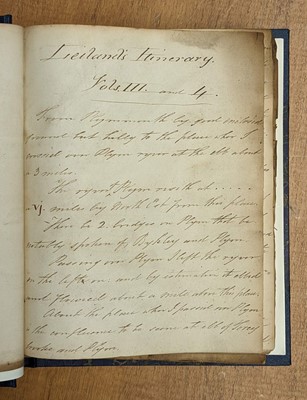 Leiland's Itinerary.
Vols. III. and 4.
From Plymmouth by good
ground but hilly to the place wher I
passid over Plym ryver at the ebb about
a 3 miles.
The ryver of Plym risith at . . . . .
a vj. miles by North Est from this place.
There be 2. bridges on Plym that be
notably spoken of Bykley and Plym
Passing over Plym I left the ryver
on the left
and a mile
About the place wher I passid over Plym
is the confluence to be seene at ebb of Torey
brooke and Plym.